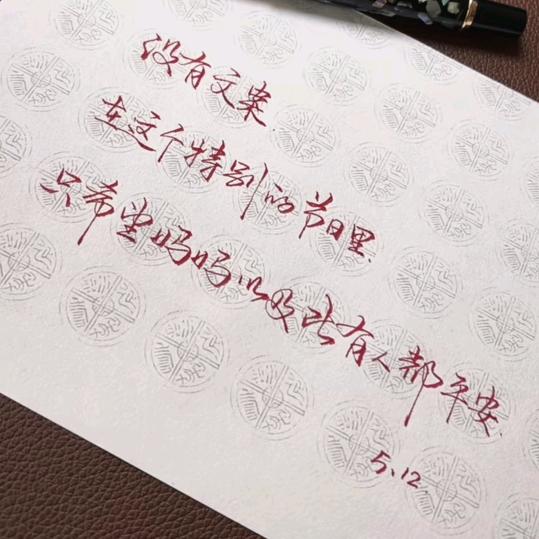 没有文案
在这个特别的节日里
只希望妈妈以及所有人都平安
5、12